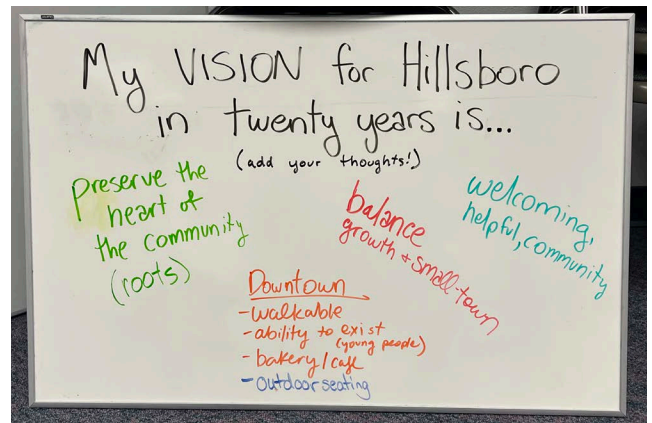 My VISION for Hillsboro
in twenty years is...
(add your thoughts!)
Preserve the
heart of
the community
(roots)
balance
growth + small-town
welcoming,
helpful, community
Downtown
- walkable
- ability to exist
(young people)
- bakery/cafe
- outdoor seating